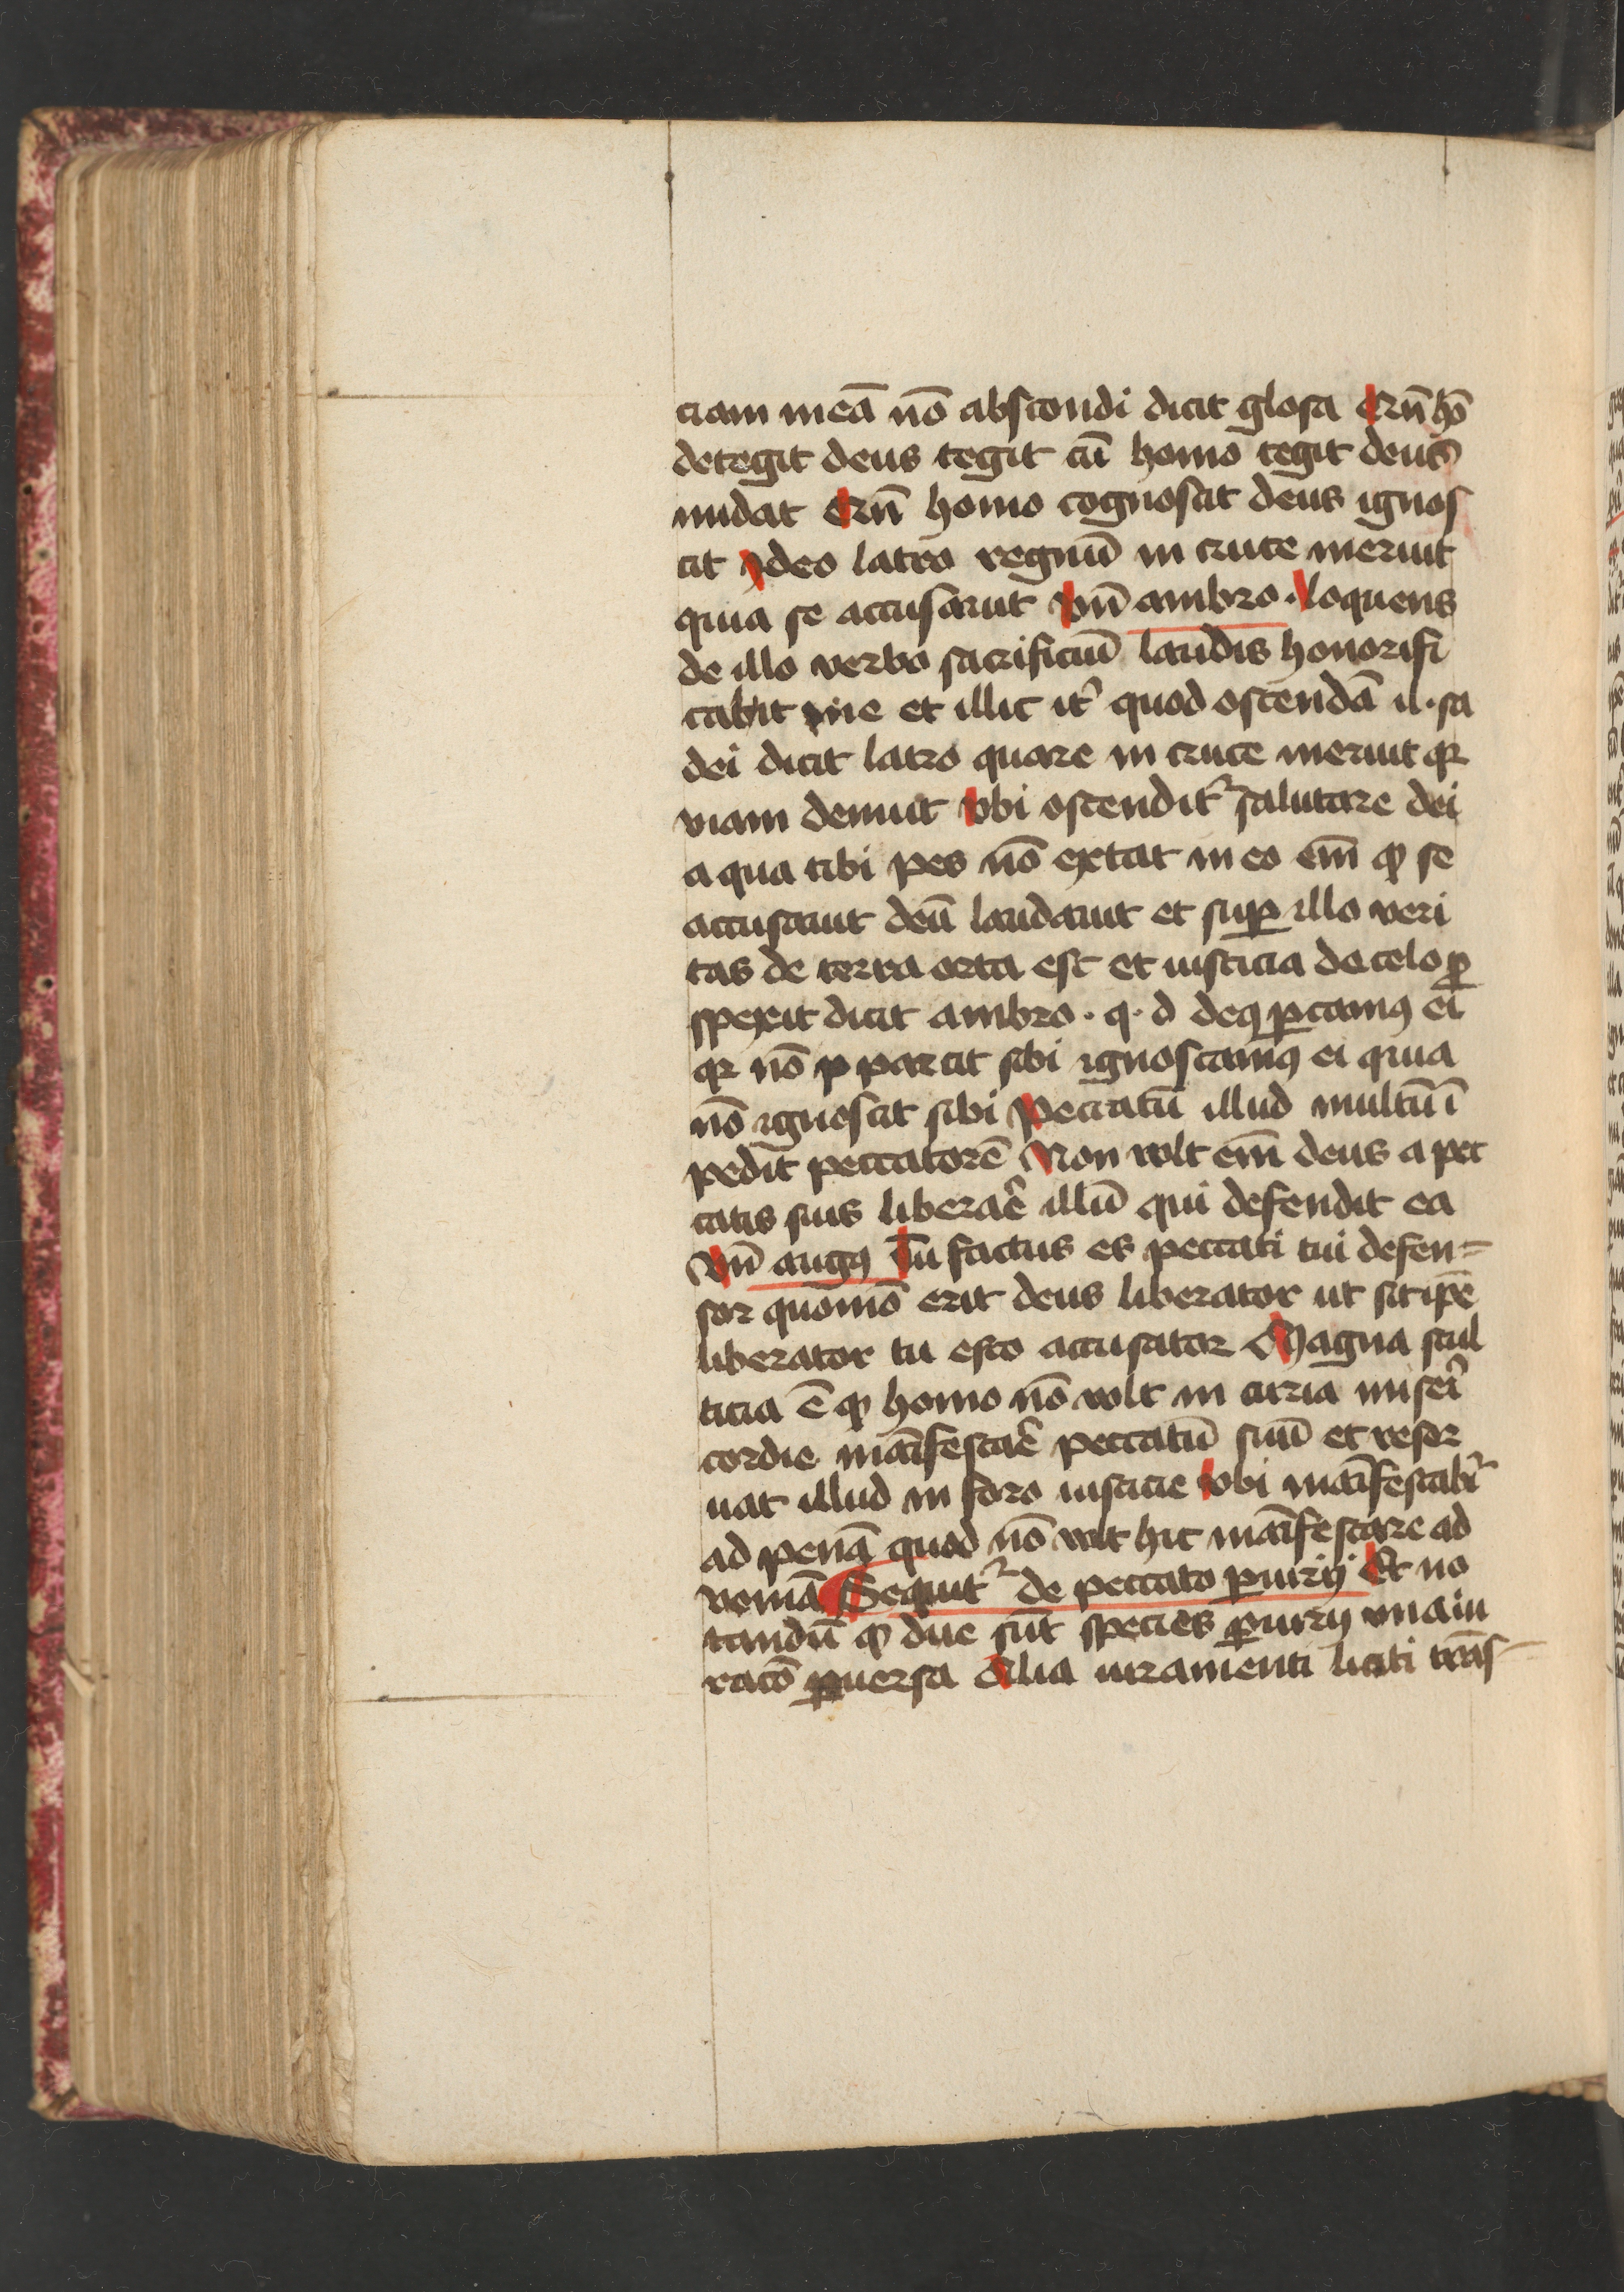 ciam meā nō abscondi dicit glosa Cū hō
detegit deus tegit cū homo tegit deus
nudat Cū homo cognoscit deus ignos
cit Ideo latro regnū in cruce meruit
quia se accusauit Vn̄ ambro. loquens
de illo verbo sacrificiū laudis honorifi
cabit me et illic it̉ quod ostendā il. sa
dei dicit latro quare in cruce meruit qr
viam denuit Vbi ostendit̉ salutare dei
a qua tibi pes nō extat in eo em̄ ꝙ se
accusauit deū laudauit et suꝑ illo veri
tas de terra orta est et iusticia de celo ꝓ
spexit dicit ambro. q. d deꝗ ꝑcamꝰ ei
qr nō p parcit sibi ignoscamꝰ ei quia
nō ignoscit sibi Peccatū illud multū ī
pedit peccatorē Non volt em̄ deus a pec
catis suis liberar̄e illū qui defendit ea
Vn̄ augꝰ Tu factus es peccati tui defen=
sor quomō erit deus liberator ut sit ip̄e
liberator tu esto accusator Magna stul
ticia ē ꝙ homo nō volt in curia miseri
cordie māifestar̄e peccatū suū et reser
uat illud in foro iusticie vbi māifestabit̉
ad penā quod nō volt hic māifestare ad
veniā Sequit̉ de peccato ꝑiurij Et no
tandū ꝙ due sūt species ꝑiurij vna iu
racō ꝑuersa Alia iuramenti liciti trās